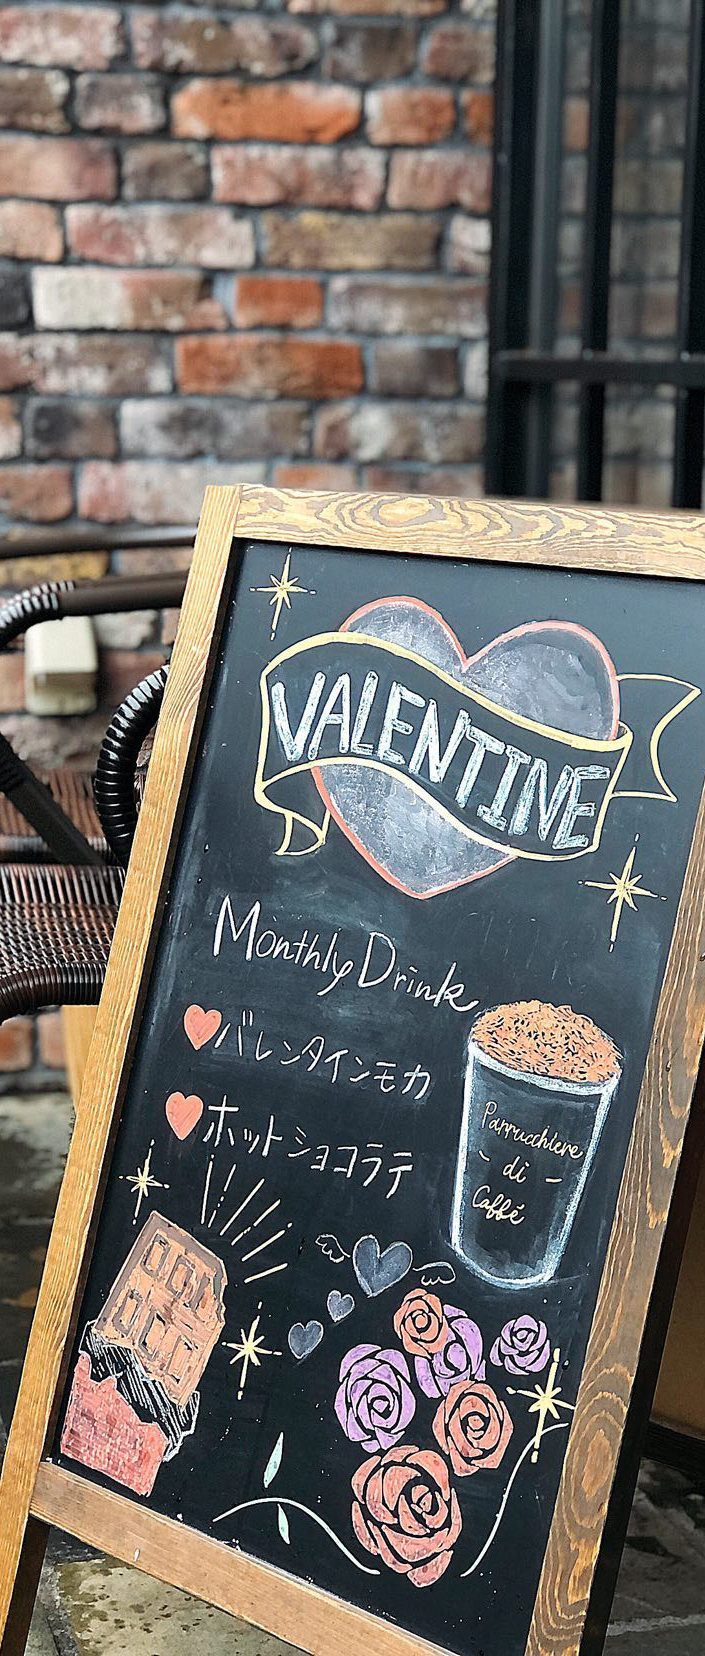 VALENTINE
Monthly Drink
バレンタインモカ
ホットショコラテ
Parrucchiere
- di -
Caffé